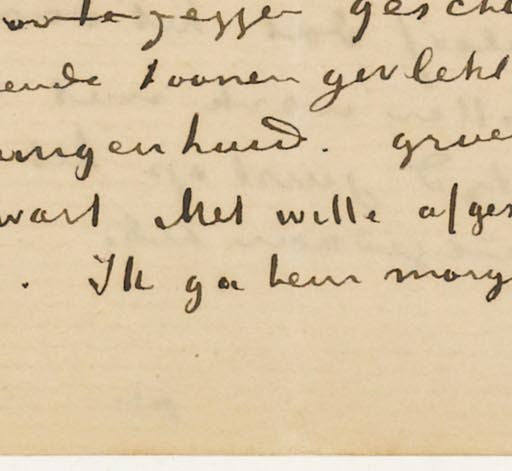 voortezeggen gesch
ende toonen gevlekt
ungenhuid. groe
wart Met witte afges
. Ik ga hem morg